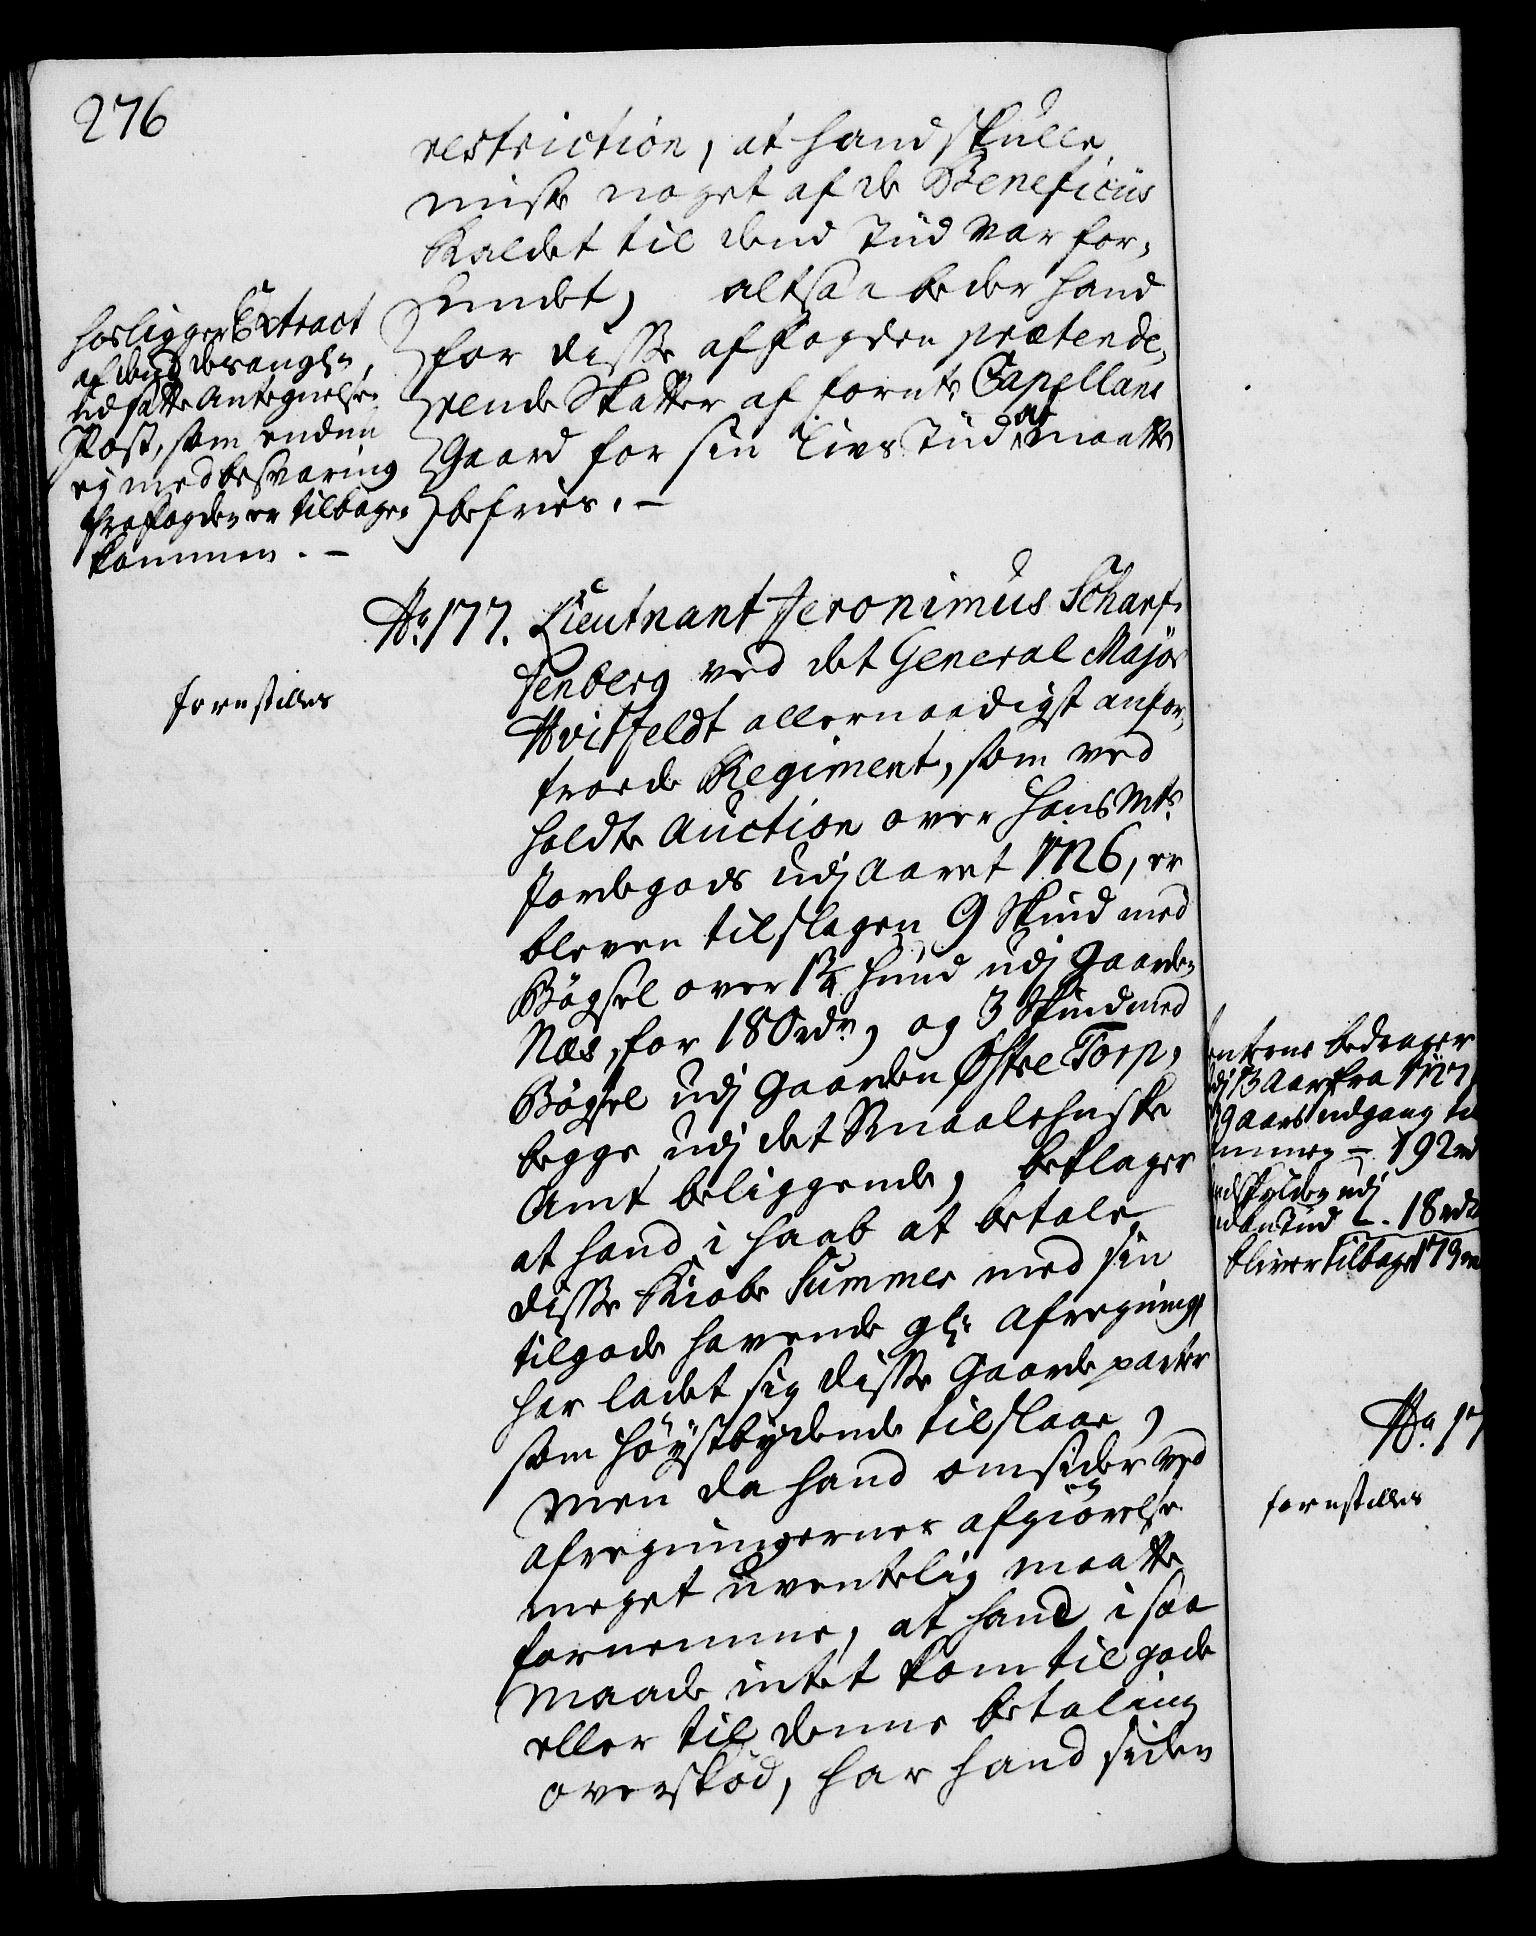 276
restriction, at hand skulle
miste noget af de Beneficiis
Kaldet til dend Tiid var for-
undet, altsaa beder hand
for disse af fogden prætende-
rende Skatter af fornte Capellans
Gaard for sin Livs Tiid at maatte
befries. –
hosligger Extract
af
udsatte Antegnelses
Post, som endnu
ej med besvaring
fra fogden er tilbage-
kommen. –
No. 177. Lieutnant Jeronimus Scharf-
fenberg ved det General Major
Hvitfeldt allernaadigst anfor-
troede Regiment, som ved
holdte Auction over Hans Mts
Jordegods udj Aaret 1726, er
bleven tilslagen 9 Skind med
Bögsel over 1¼ Hund udj Gaarden
Næs, for 180 rdr, og 3 Skind med
Bögsel udj Gaarden Østre Torp,
begge udj det Smaalehnske
Amt beliggende, beklager
at hand i haab at betale
disse Kiøbe Summer med sin
tilgode havende gle afregning,
har ladet sig disse Gaarde parter
som höystbydende tilslaae,
men da hand omsider ved
afregningernes afgiörelse
meget uventelig maatte
fornemme, at hand i saa
maade intet kom til gode
eller til denne betaling
oversköd, har hand siden
forestilles
bedrager
13 Aar fra 1727
Aars udgang til
192 rd
udj
Tiid – 18 rdr
bliver tilbage 179
No. 17
forestilles